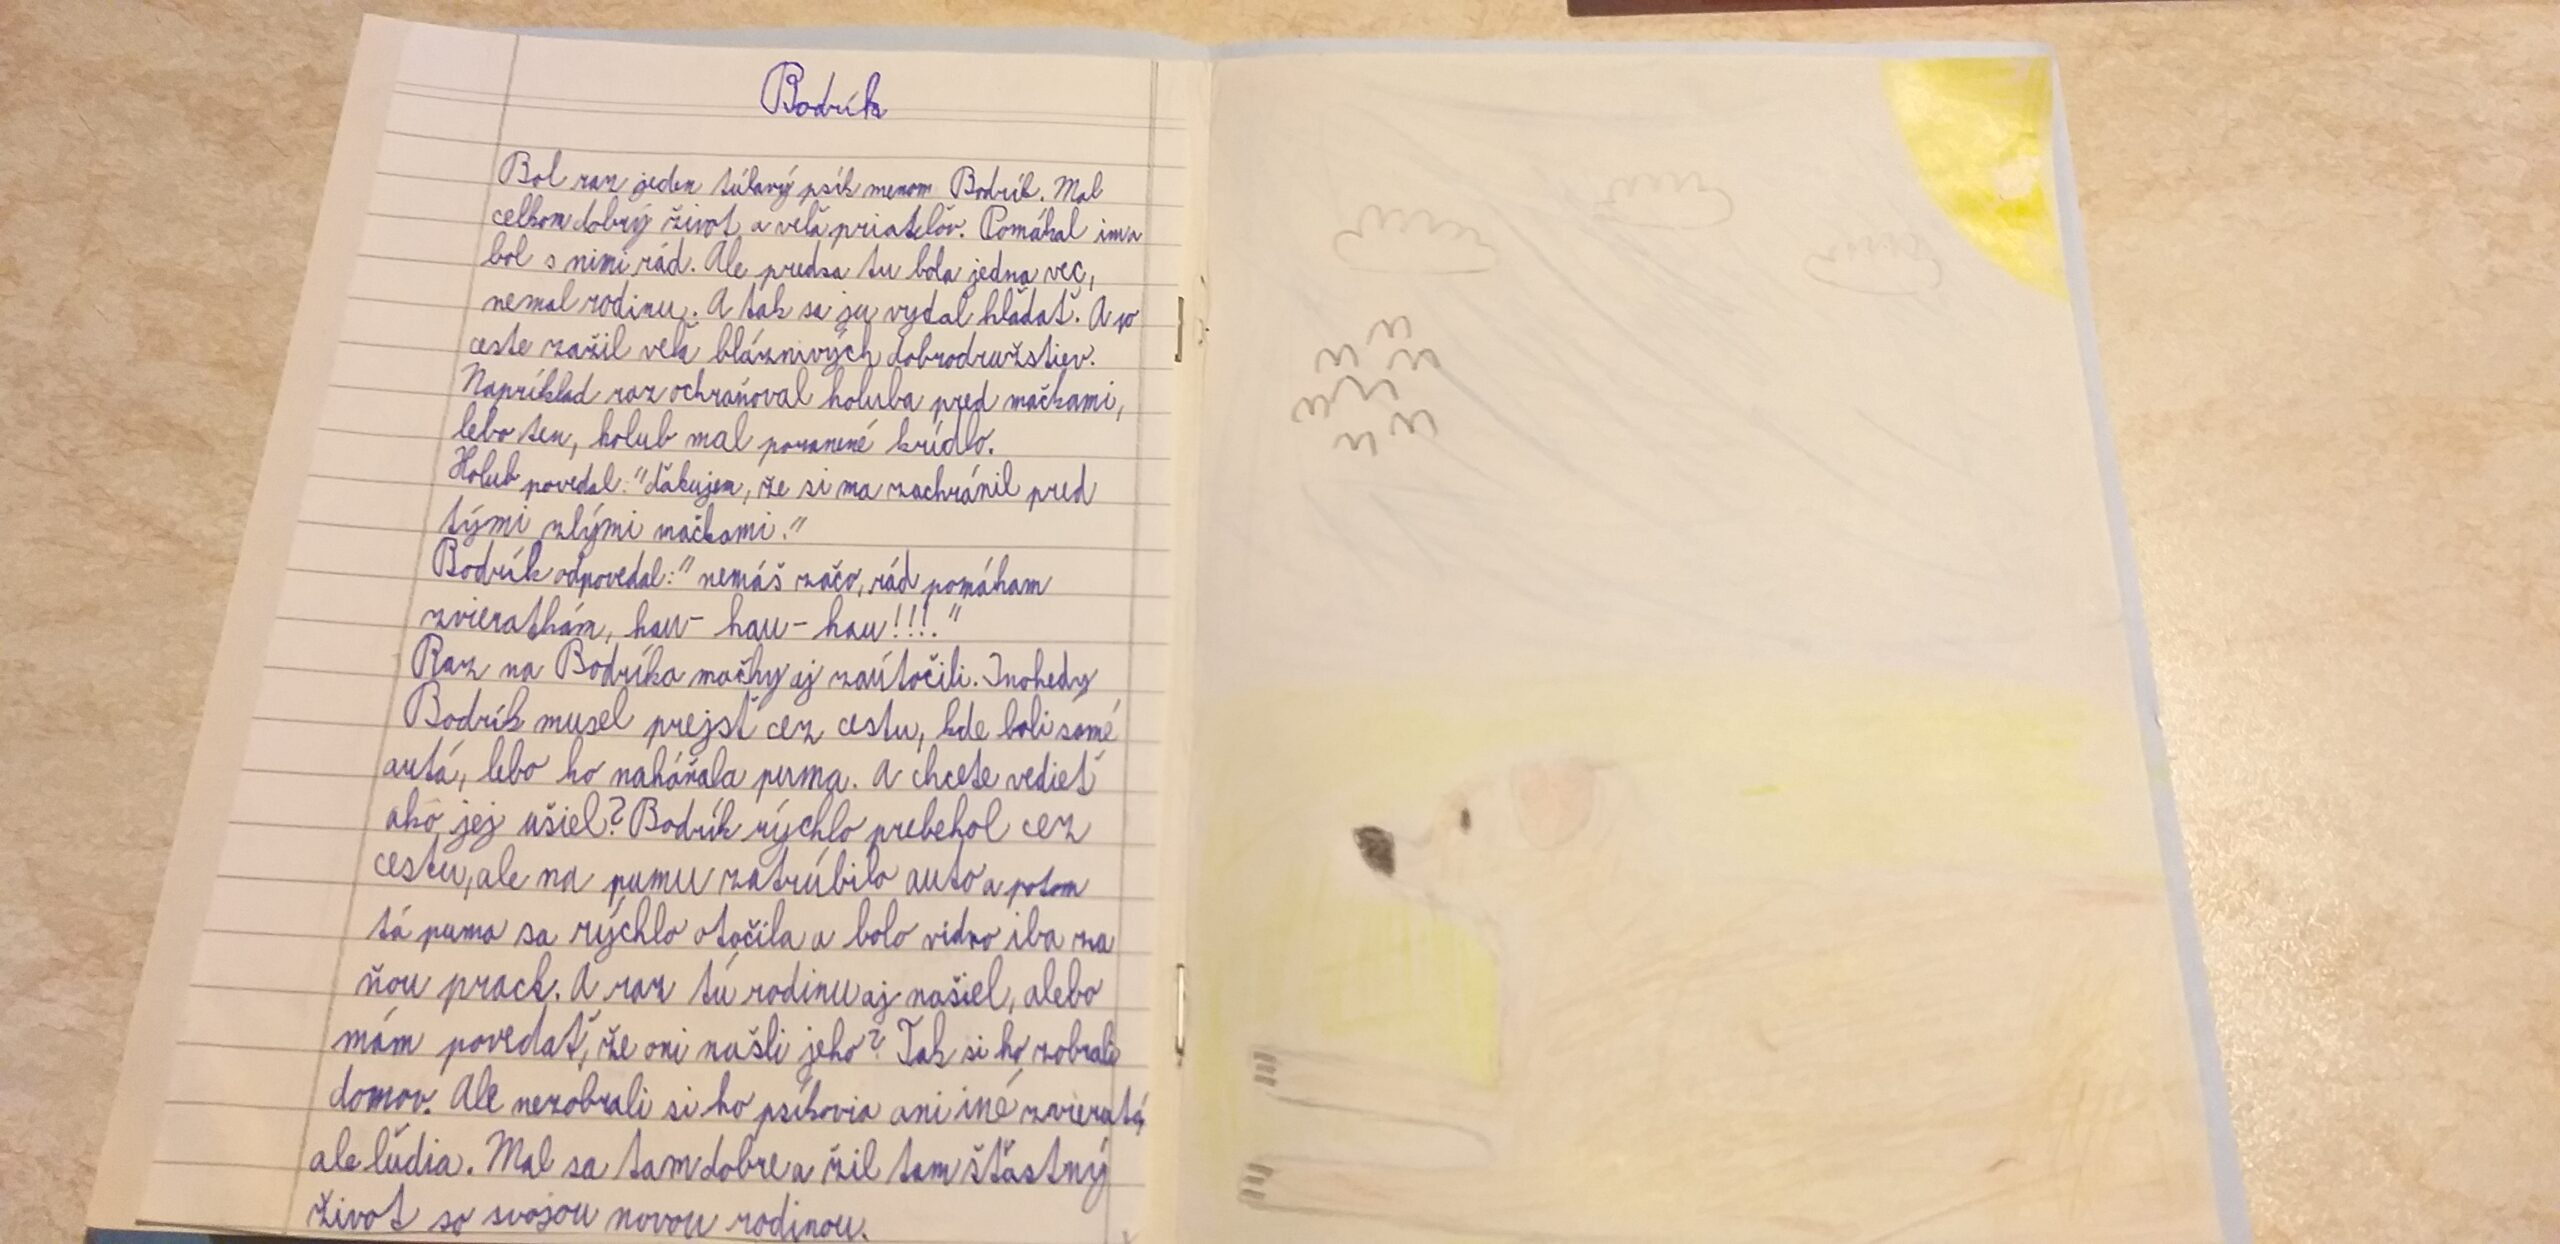 Bodrík
Bol raz jeden túlavý psík menom Bodrík. Mal
celkom dobrý život a veľa priateľov. Pomáhal im a
bol s nimi rád. Ale predsa tu bola jedna vec,
nemal rodinu. A tak sa ju vydal hľadať. A po
ceste zažil veľa bláznivých dobrodružstiev.
Napríklad raz ochraňoval holuba pred mačkami,
lebo ten, holub mal poranené krídlo.
Holub povedal:"ďakujem, že si ma zachránil pred
tými zlými mačkami."
Bodrík odpovedal:"nemáš začo, rád pomáham
zvieratkám, hau- hau- hau!!!."
Raz na Bodríka mačky aj zaútočili. Inokedy
Bodrík musel prejsť cez cestu, kde boli samé
autá, lebo ho naháňala puma. A chcete vedieť
ako jej ušiel? Bodrík rýchlo prebehol cez
cestu, ale na pumu zatrúbilo auto a potom
tá puma sa rýchlo otočila a bolo vidno iba za
ňou prach. A raz tú rodinu aj našiel, alebo
mám povedať, že oni našli jeho? Tak si ho zobrali
domov. Ale nezobrali si ho psíkovia ani iné zvieratá,
ale ľudia. Mal sa tam dobre a žil tam šťastný
život so svojou novou rodinou.